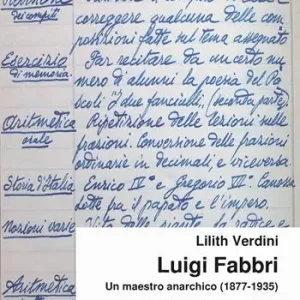 dei compiti
correggere qualcuna delle com
posizioni fatte sul tema assegnato
Esercizio
di memoria.
Far recitare da un certo nu
mero di alunni la poesia del Pa
scoli "I due fanciulli" (seconda parte)
Aritmetica
orale
Ripetizione delle lezioni sulle
frazioni. Conversione delle frazioni
ordinarie in decimali e viceversa
Storia d'Italia
Enrico IV° e Gregorio VII°. Canossa
Lotte fra il papato e l'impero.
Nozioni varie
Vita delle piante. La radice e
Aritmetica
Lilith Verdini
Luigi Fabbri
Un maestro anarchico (1877-1935)